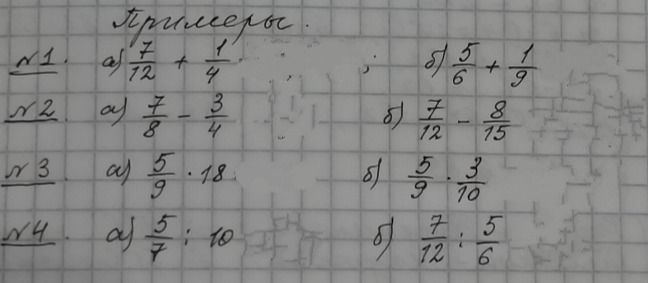 Примеры.
№1. а) 7/12 + 1/4 ; б) 5/6 + 1/9
№2. а) 7/8 - 3/4 б) 7/12 - 8/15
№3. а) 5/9 · 18 б) 5/9 · 3/10
№4. а) 5/7 : 10 б) 7/12 : 5/6